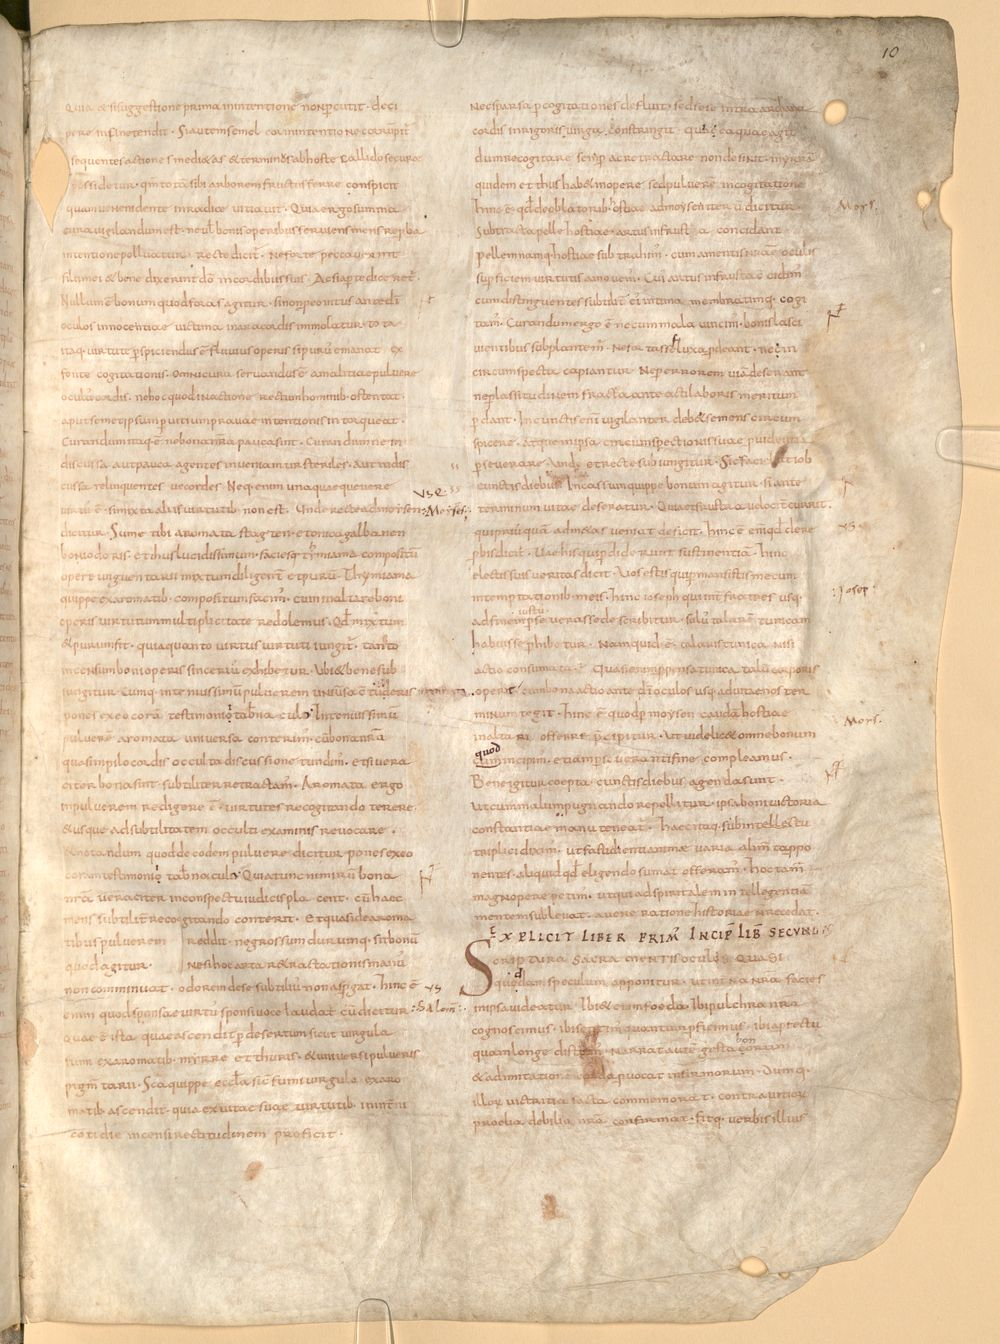 10
Quia & si suggestione prima in intentione non pcutit · deci
pere in fine tendit · Si autem semel cor in intentione corrupit
sequentes actiones medi&as & terminus ab hoste callido secure
possidetur · qm tota sibi arborem fructus ferre conspicit
quam ueneni dente in radice uitiauit · Quia ergo summa
cura uigilandum est · ne uel bonis operibus seruiens mens reproba
intentione polluatur · recte dicit · Ne forte peccauerint
filii mei & bene dixerint do in cordibus suis · Ac si aperte dicer&
Nullum e bonum quod foras agitur · si non p eo intus ante di
oculos innocentiae uictima in ara cordis immolatur · tota
itaq · uirtute pspiciendus e fluuius operis si purus emanat ex
fonte cogitationis · Omni cura seruandus e a malitiae puluere
oculus cordis · ne hoc quod in actione rectum hominib · ostentat ·
aput semetipsum p uitium prauae intentionis intorqueat ·
Curandum itaq · e ne bona nra pauca sint · Curandum ne in
discussa · aut pauca agentes inueniamur steriles · aut indis
cussa relinquentes uecordes Neq · enim unaquaeque uere
uirtus e · si mixta aliis uirtutib · non est · Unde recte ad moysen
: Moyses :
dicitur · Sume tibi aromata stagten · et onica galbanen
boni odoris · et thus lucidissimum · faciesq · thymiama compositu
opere unguentarii mixtum diligent et puru · Thymiama
quippe ex aromatib · compositum facim · cum in altare boni
operis uirtutum multiplicitate redolemus · Qd mixtum
& purum fit · quia quanto uirtus uirtuti iungit · tanto
incensum boni operis sinceriu exhibetur · Ubi & bene sub
iungitur Cumq · in tenuissimu puluerem uniuersa c tuderis
pones ex eo cora testimonio tabnaculo In tenuissimu
puluere aromata uniuersa conterim · cu bona nra
quasi in pila cordis occulta discussione tundim · et si uera
citer bona sint · subtiliter retractam · Aromata ergo
in puluerem redigere e · uirtutes recogitando terere ·
& usque ad subtilitatem occulti examinis reuocare ·
& notandum quod de eodem puluere dicitur pones ex eo
coram testimonio tabnaculo Quia tunc nimiru bona
nra ueraciter in conspectu iudicis placent · cu haec
mens subtilit recogitando conterit · Et quasi de aroma
tibus puluerem reddit · ne grossum durumq · sit bonu
quod agitur · Ne si hoc arta r&ractationis manu
non comminuat · odorem de se subtiliu non aspgat · hinc e
enim quod sponsae uirtus sponsi uoce laudat cu dicitur
: Salom :
Quae e ista quae ascendit p desertum sicut uirgula
fumi ex aromatib · myrre et thuris · & uniuersi pulueris
pigmtarii · Sca quippe ecclia sic fumi uirgula ex aro
matib ascendit · quia ex uitae suae uirtutib · in intni
cotidie incensi rectitudinem proficit ·
Nec sparsa p cogitationes defluit · sed sese intra arcana
cordis in rigoris uirga constringit · quae ea quae agit
dum recogitare semp ac retractare non desinit · myrra
quidem et thus hab& in opere sed puluere in cogitatione
hinc e qd de oblatorib · hostiae ad moysen iteru dicitur ·
Moys.
Subtracta pelle hostiae · artus in frusta concidant ·
pellem namq · hostiae subtrahim · cum a mentis nrae oculis
supficiem uirtutis amouem · Cui artus in frusta e cidim
cum distinguentes subtilit ei intima membratimq · cogi
tam · Curandum ergo e ne cum mala uincim · bonis lasci
uientibus subplantem · Ne forte fluxa pdeant · ne in
circumspecta capiantur Ne p errorem uia deserant
ne p lassitudinem fracta anteacti laboris meritum
pdant · In cunctis eni uigilanter deb& se mens circum
spicere · Atque in ipsa circumspectionis suae puidentia
pseuerare · Unde et recte subiungitur · Sic faciebat iob
cunctis diebus Incassum quippe bonum agitur · si ante
terminum uitae deseratur · Quia et frustra uelocit currit ·
qui priusqua ad m&as ueniat deficit · hinc e em qd de re
pbis dicit · Uae his qui pdiderunt sustinentia · hinc
electis suis ueritas dicit · Uos estis qui pmansistis mecum
in temptationib · meis · hinc ioseph qui int fratres usq ·
: Josep :
ad finem iustus pseuerasse describitur · solus talarem tunicam
habuisse phibetur · Nam quid e talaris tunica · nisi
actio consumata · Quasi enim ppensa tunica talu corporis
operit · cum bona actio ante di oculos usq · ad uitae nos ter
minum tegit · hinc e quod p moysen cauda hostiae
Moys.
in altari offerre pcipitur · Ut uidelic& omne bonum
quod
incipim · etiam pseueranti fine compleamus ·
Bene igitur coepta cunctis diebus agenda sunt ·
ut cum malum pugnando repellitur · ipsa boni uictoria
constantiae manu teneatur · haec itaq · sub intellectu
triplici diximus · ut fastidienti animae uaria alim ta ppo
nentes · aliquid qd eligendo sumat offeram · hoc tam
magnopere petim · ut qui ad spiritalem intellegentia
mentem subleuat · a ueneratione historiae n recedat ·
EXPLICIT LIBER PRIM INCIP LIB SECUNDUS
Scriptura sacra mentis oculos quasi
quoddam speculum apponitur · ut interna nra facies
in ipsa uideatur Ibi & enim foeda ibi pulchra nra
cognoscimus · ibi sentim quantum pficimus · ibi a pfectu
quam longe distam Narrat aute gesta fortium
& ad imitatione corda puocat infirmorum · Dumq ·
illoru uictricia facta commemorat · contra uitioru
proelia debilia nra confirmat · fitq · uerbis illius